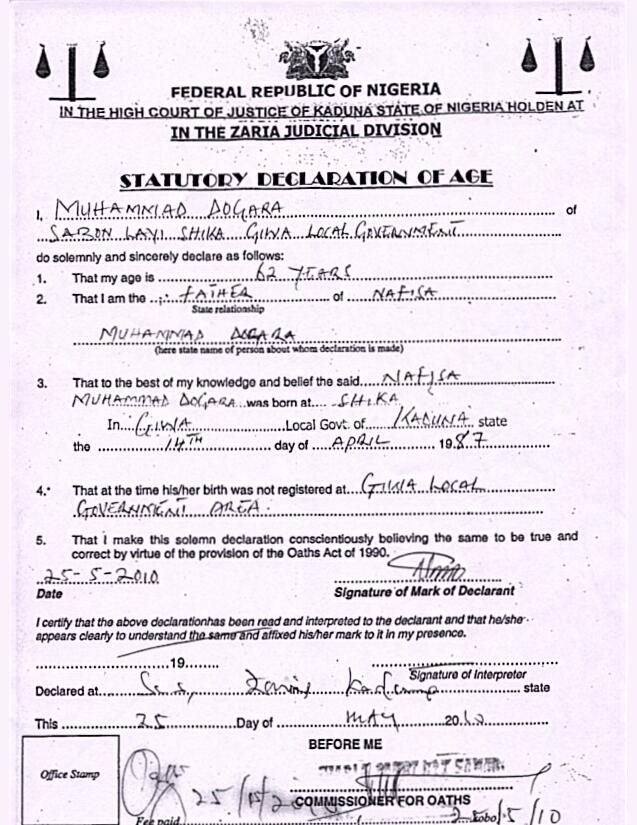 FEDERAL REPUBLIC OF NIGERIA
IN THE HIGH COURT OF JUSTICE OF KADUNA STATE OF NIGERIA HOLDEN AT
IN THE ZARIA JUDICIAL DIVISION
STATUTORY DECLARATION OF AGE
I, MUHAMMAD DOGARA of
SABON LAYI SHIKA GIWA LOCAL GOVERNMENT
do solemnly and sincerely declare as follows:
1. That my age is 62 YEARS
2. That I am the FATHER of NAFISA
State relationship
MUHAMMAD DOGARA
(here state name of person about whom declaration is made)
3. That to the best of my knowledge and belief the said NAFISA
MUHAMMAD DOGARA was born at SHIKA
In GIWA Local Govt. of KADUNA state
the 14TH day of APRIL 1987
4. That at the time his/her birth was not registered at GIWA LOCAL
GOVERNMENT AREA.
5. That I make this solemn declaration conscientiously believing the same to be true and
correct by virtue of the provision of the Oaths Act of 1990.
25-5-2010
Date Signature of Mark of Declarant
I certify that the above declarationhas been read and interpreted to the declarant and that he/she
appears clearly to understand the same and affixed his/her mark to it in my presence.
19
Signature of Interpreter
Declared at state
This 25 Day of MAY 2010
BEFORE ME
Office Stamp
COMMISSIONER FOR OATHS
Fee paid